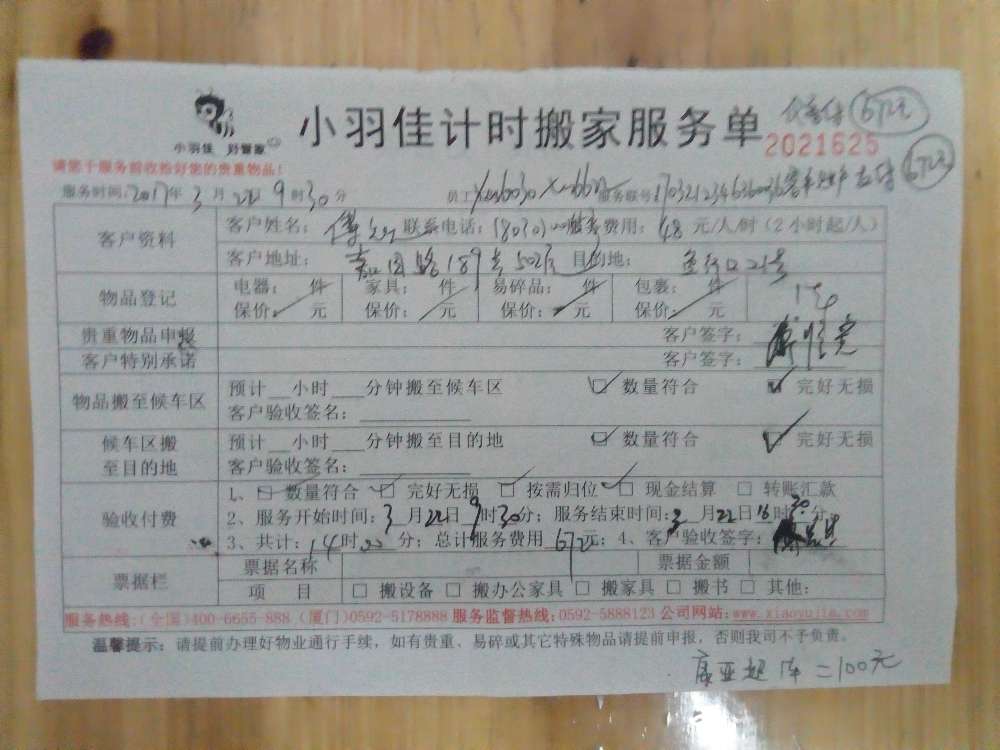 小羽佳 好管家
小羽佳计时搬家服务单
672元
2021625
672元
请您于服务前收拾好您的贵重物品!
服务时间:2017年3月22日9时30分 员工 服务联号:
客户资料
客户姓名: 联系电话: 服务费用:48元/人/时(2小时起/人)
客户地址: 嘉园路189号502 目的地: 21号
物品登记
电器: 件 家具: 件 易碎品: 件 包裹: 件
保价: 元 保价: 元 保价: 元 保价: 元
贵重物品申报 客户签字:
客户特别承诺 客户签字:
物品搬至候车区
预计__小时___分钟搬至候车区 数量符合 完好无损
客户验收签名:
候车区搬至目的地
预计__小时___分钟搬至目的地 数量符合 完好无损
客户验收签名:
验收付费
1、数量符合 完好无损 按需归位 现金结算 转账汇款
2、服务开始时间:3月22日9时30分;服务结束时间:3月22日16时30分;
3、共计:14时00分;总计服务费用672元;4、客户验收签字:
票据栏
票据名称 票据金额
项 目 搬设备 搬办公家具 搬家具 搬书 其他:
服务热线:(全国)400-6655-888 (厦门)0592-5178888 服务监督热线:0592-5888123 公司网站:www.xiaoyujia.com
温馨提示:请提前办理好物业通行手续,如有贵重、易碎或其它特殊物品请提前申报,否则我司不予负责。
=100元